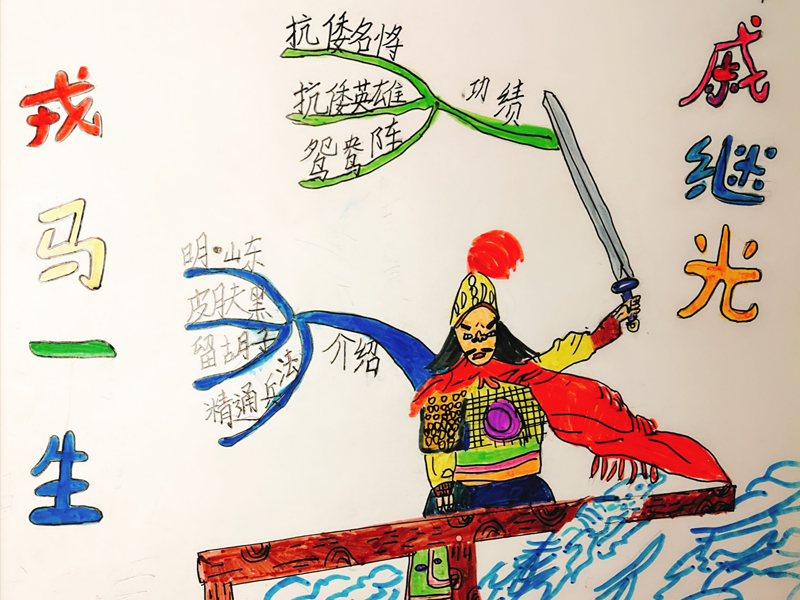 戚继光
戎马一生
功绩
抗倭名将
抗倭英雄
鸳鸯阵
介绍
明·山东
皮肤黑
留胡子
精通兵法